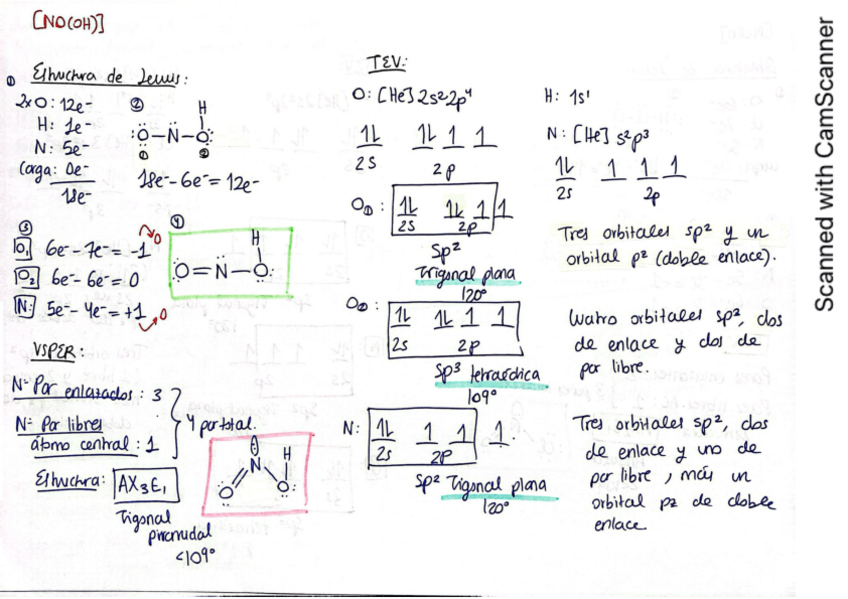 [NO(OH)]
① Estructura de Lewis:
2xO: 12e-
H: 1e-
N: 5e-
Carga: 0e-
18e-
②
H
:O-N-O:
① ②
18e- - 6e- = 12e-
③
O₁ 6e- - 7e- = -1 → 0
O₂ 6e- - 6e- = 0
N: 5e- - 4e- = +1 → 0
④
H
O=N-O:
VSPER:
Nº Par enlatados: 3
Nº Par libres
átomo central: 1
4 par total.
Estructura: AX₃E₁
Trigonal
piramidal
<109º
H
N
O O:
TEV:
O: [He] 2s² 2p⁴
1L 1L 1 1
2s 2p
O①: 1L 1L 1 1
2s 2p
Sp²
Trigonal plana
120º
O②: 1L 1L 1 1
2s 2p
Sp³ tetraédica
109º
N: 1L 1 1 1.
2s 2p
Sp² Trigonal plana
120º
H: 1s¹
N: [He] s²p³
1L 1 1 1
2s 2p
Tres orbitales sp² y un
orbital p² (doble enlace).
Cuatro orbitales sp², dos
de enlace y dos de
par libre.
Tres orbitales sp², dos
de enlace y uno de
par libre, más un
orbital pz de doble
enlace.
Scanned with CamScanner